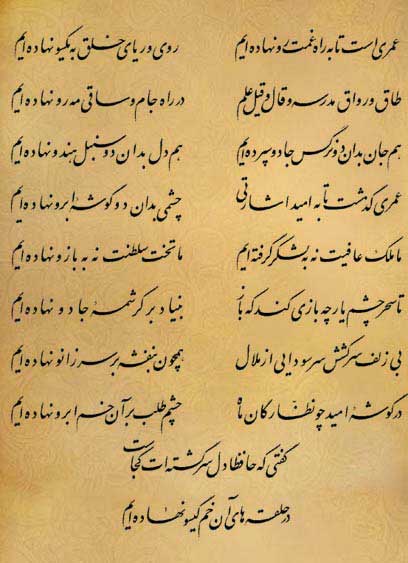 عمری است تا به راه غمت رو نهاده ایم روی و ریای خلق به یکسو نهاده ایم
طاق و رواق مدرسه و قال و قیل علم در راه جام و ساقی مه رو نهاده ایم
هم جان بدان دو نرگس جادو سپرده ایم هم دل بدان دو سنبل هندو نهاده ایم
عمری گذشت تا به امید اشارتی چشمی بدان دو گوشهٔ ابرو نهاده ایم
ما ملک عافیت نه به لشگر گرفته ایم ما تخت سلطنت نه به بازو نهاده ایم
تا سحر چشم یار چه بازی کند که باز بنیاد بر کرشمهٔ جادو نهاده ایم
بی زلف سرکشش سر سودایی از ملال همچون بنفشه بر سر زانو نهاده ایم
در گوشهٔ امید چو نظارگان ماه چشم طلب بر آن خم ابرو نهاده ایم
گفتی که حافظا دل سرگشته ات کجاست
در حلقه های آن خم گیسو نهاده ایم